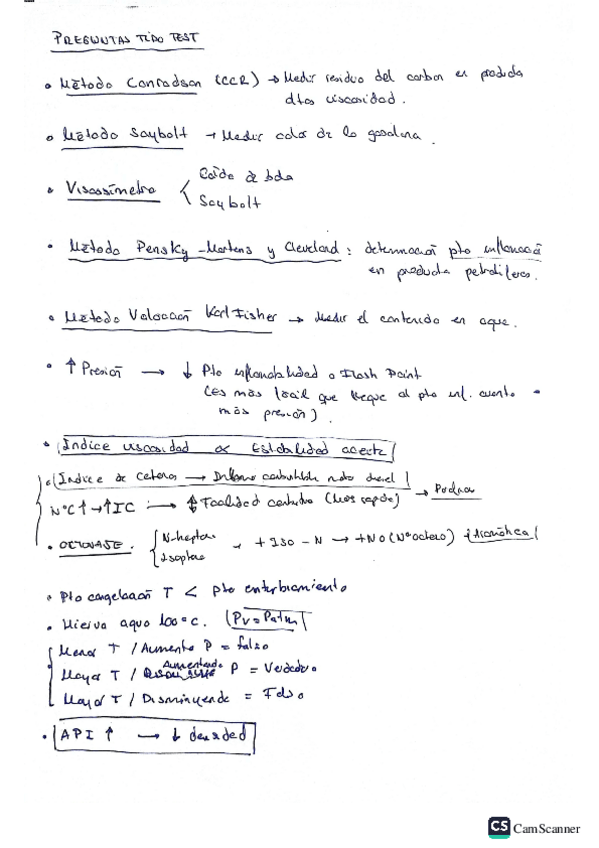 PREGUNTAS TIPO TEST
• Método Conradson (CCR) → Medir residuo del carbon en producta
dtos viscosidad.
• Método Saybolt → Medir color de la gasolina.
• Viscosímetro < Caída de bola
Saybolt
• Método Pensky-Martens y Cleveland: determinación pto inflamació
en producta petrolíferos.
• Método Valoración Karl Fisher → Medir el contenido en agua.
• ↑ Presión → ↓ Pto inflamabilidad o Flash Point
(es más fácil que llegue al pto inf. cuanto
más presión).
• Indice viscosidad ∝ Estabilidad aceite
• Indice de Cetano →
Nº C ↑ → ↑ IC → Facilidad (Mas rapido)
• OCTANAJE. N-heptano
Isoptano + ISO - N → + NO (Nº octano) Aromática
• Pto congelación T < pto enturbiamiento
• Hierva agua 100°C. (Pv = Patm)
Menor T / Aumento P = falso
Mayor T / Aumentando P = Verdadero
Mayor T / Disminuyendo = Falso
• API ↑ → ↓ densidad
CS CamScanner